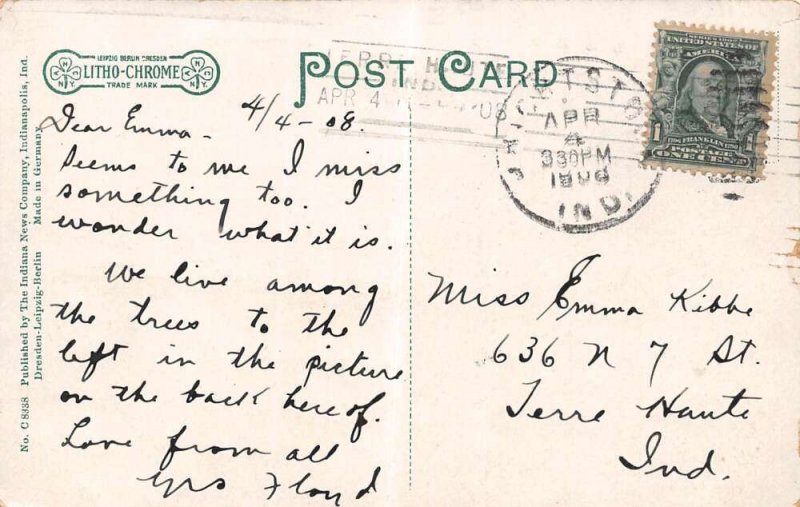 LEIPZIG BERLIN DRESDEN
LITHO-CHROME
TRADE MARK
POST CARD
No. C 8338 Published by The Indiana News Company, Indianapolis, Ind.
Dresden-Leipzig-Berlin Made in Germany
TERRE HAUTE
IND.
APR 4
08
APR
4
330PM
1908
IND.
SERIES 1902
UNITED STATES OF
AMERICA
FRANKLIN
1 1
ONE CENT
4/4-08.
Dear Emma-
Seems to me I miss
something too. I
wonder what it is.
We live among
the trees to the
left in the picture
on the back here of.
Love from all
Yrs Floyd
Miss Emma Kibbe
636 N 7 St.
Terre Haute
Ind.